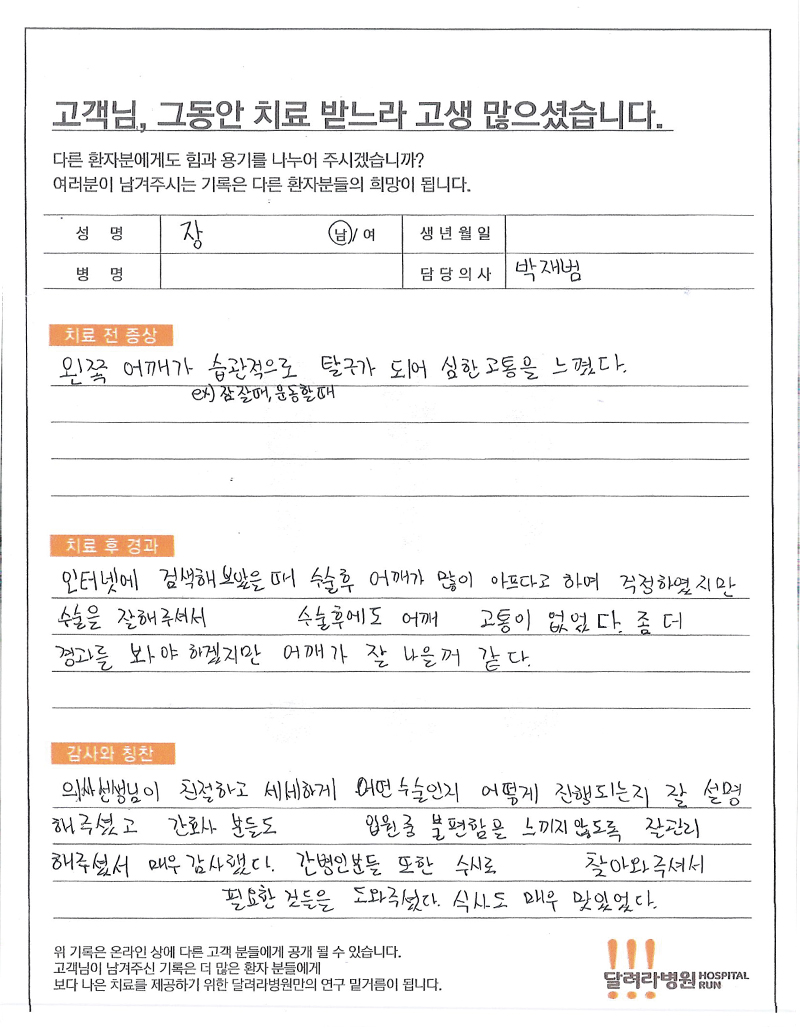 고객님, 그동안 치료 받느라 고생 많으셨습니다.
다른 환자분에게도 힘과 용기를 나누어 주시겠습니까?
여러분이 남겨주시는 기록은 다른 환자분들의 희망이 됩니다.
성 명 장 남/여 생년월일
병 명 담당의사 박재범
치료 전 증상
왼쪽 어깨가 습관적으로 탈구가 되어 심한 고통을 느꼈다.
ex) 잠잘때, 운동할때
치료 후 경과
인터넷에 검색해보았을때 수술후 어깨가 많이 아프다고 하여 걱정하였지만
수술을 잘해주셔서 수술후에도 어깨 고통이 없었다. 좀 더
경과를 봐야 하겠지만 어깨가 잘 나을꺼 같다.
감사와 칭찬
의사선생님이 친절하고 세세하게 어떤수술인지 어떻게 진행되는지 잘 설명
해주셨고 간호사 분들도 입원중 불편함을 느끼지않도록 잘관리
해주셨서 매우감사했다. 간병인분들 또한 수시로 찾아와주셔서
필요한 것들을 도와주셨다. 식사도 매우 맛있었다.
위 기록은 온라인 상에 다른 고객 분들에게 공개 될 수 있습니다.
고객님이 남겨주신 기록은 더 많은 환자 분들에게
보다 나은 치료를 제공하기 위한 달려라병원만의 연구 밑거름이 됩니다.
!!!
달려라병원 HOSPITAL RUN